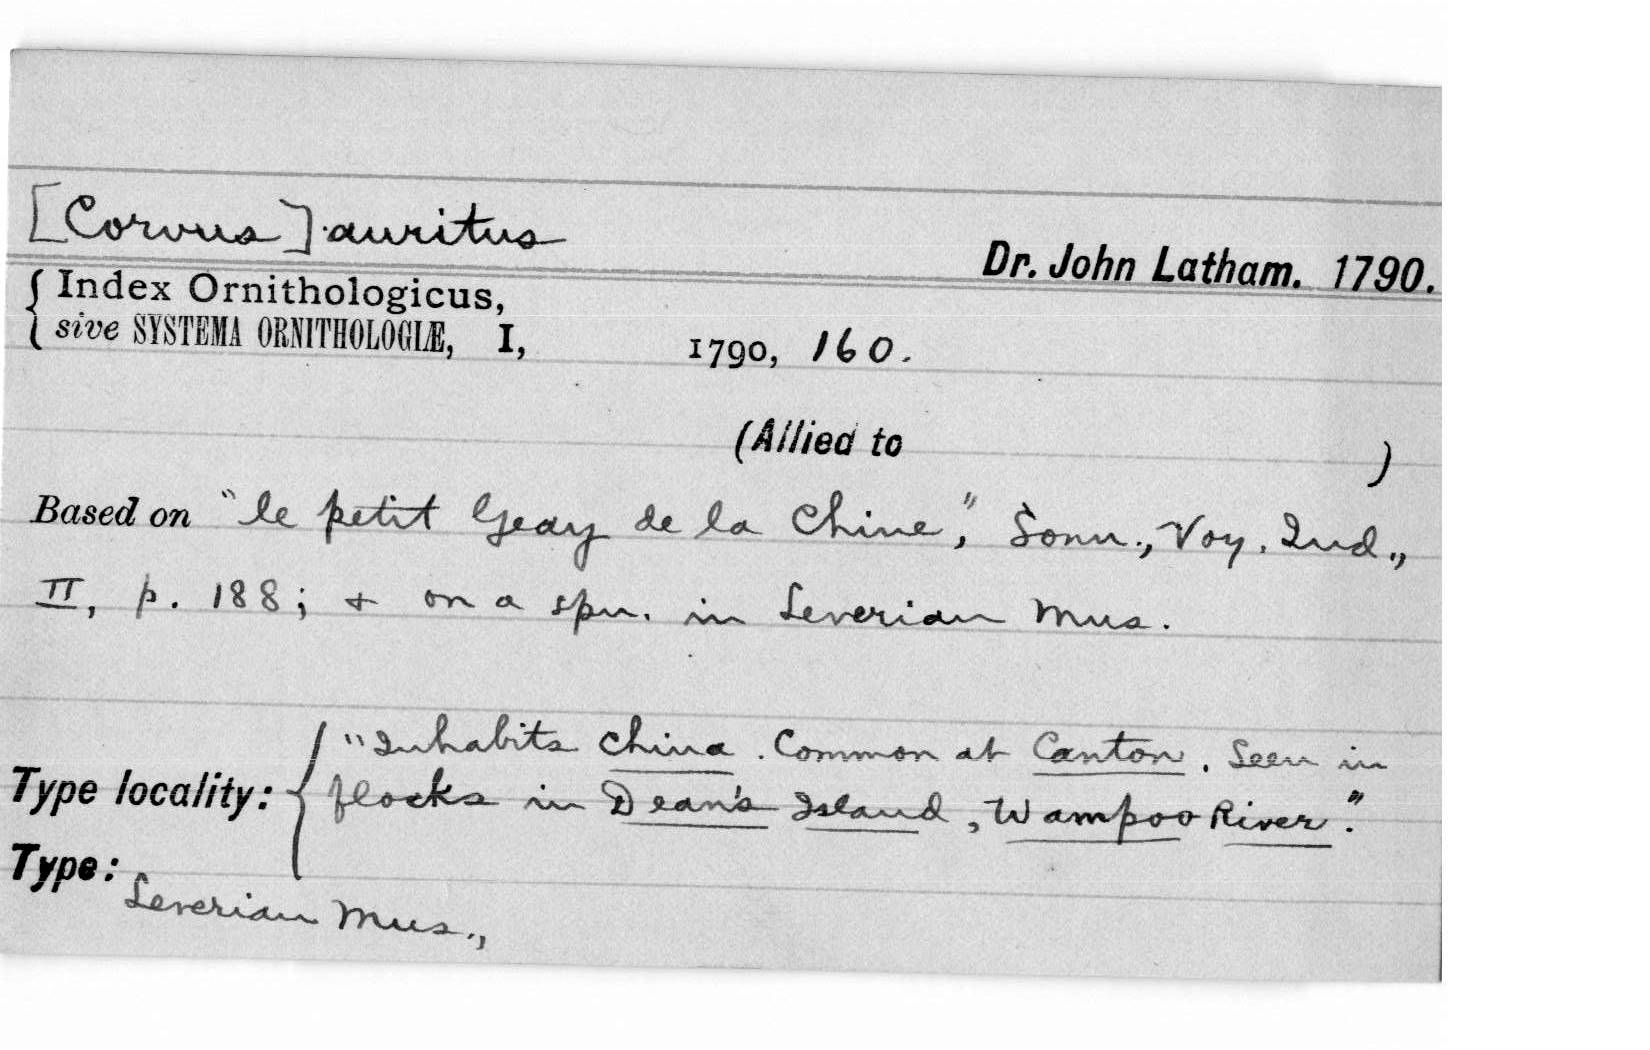 [Corvus] auritus
Dr. John Latham. 1790.
{ Index Ornithologicus,
sive SYSTEMA ORNITHOLOGIÆ, I, 1790, 160.
(Allied to )
Based on "le petit Geay de la Chine", Sonn., Voy. Ind.,
II, p. 188; + on a spn. in Leverian Mus.
Type locality: { "Inhabits China. Common at Canton. Seen in
flocks in Dean's Island, Wampoo River."
Type: Leverian Mus.,